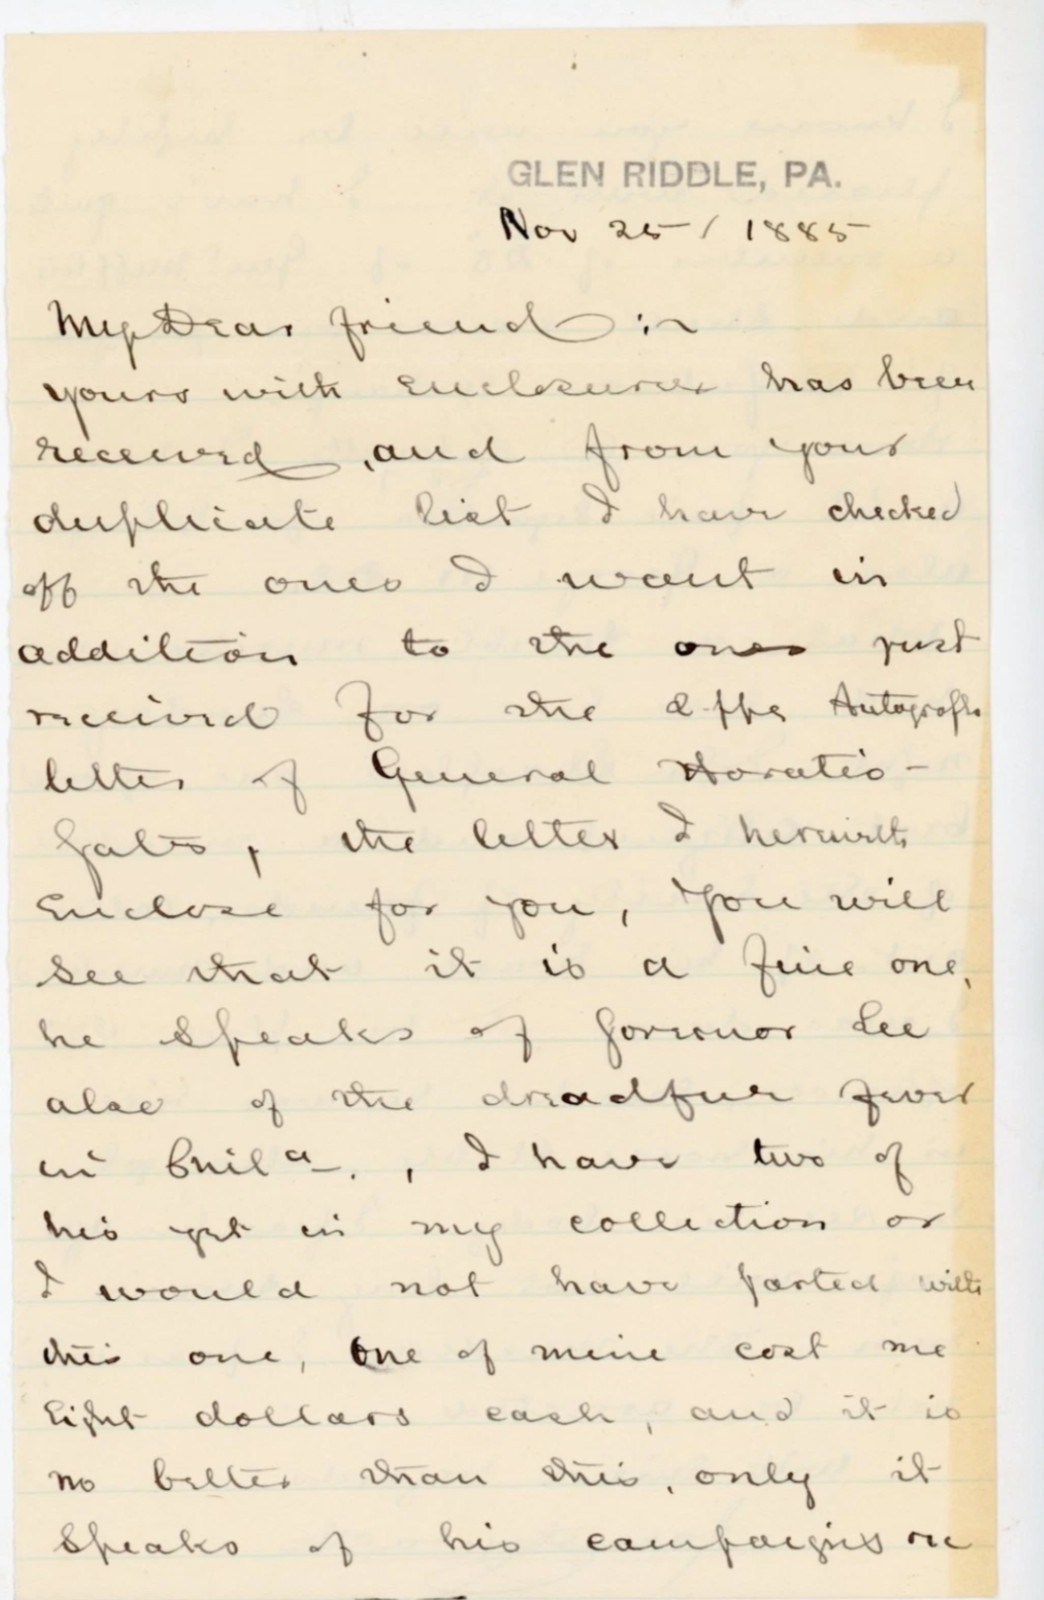 GLEN RIDDLE, PA.
Nov 25 / 1885
My Dear friend :~
yours with Enclosures has been
received, and from your
duplicate list I have checked
off the ones I want in
addition to the ones just
received for the 2.ppg Autograph
letter of General Horatio -
Gates, the letter I herewith
Enclose for you, You will
see that it is a fine one,
he speaks of Governor Lee
also of the dreadful fever
in Phila., I have two of
his yet in my collection or
I would not have parted with
this one, One of mine cost me
Eight dollars cash, and it is
no better than this, only it
speaks of his campaigns